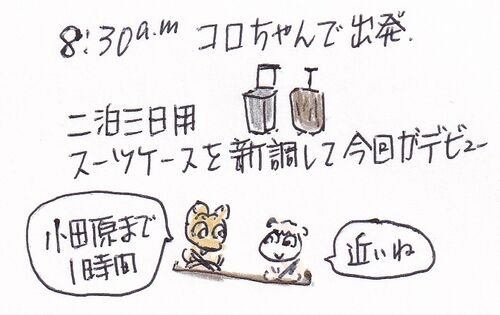 8:30a.m コロちゃんで出発.
二泊三日用
スーツケースを新調して今回がデビュー
小田原まで
1時間
近いね